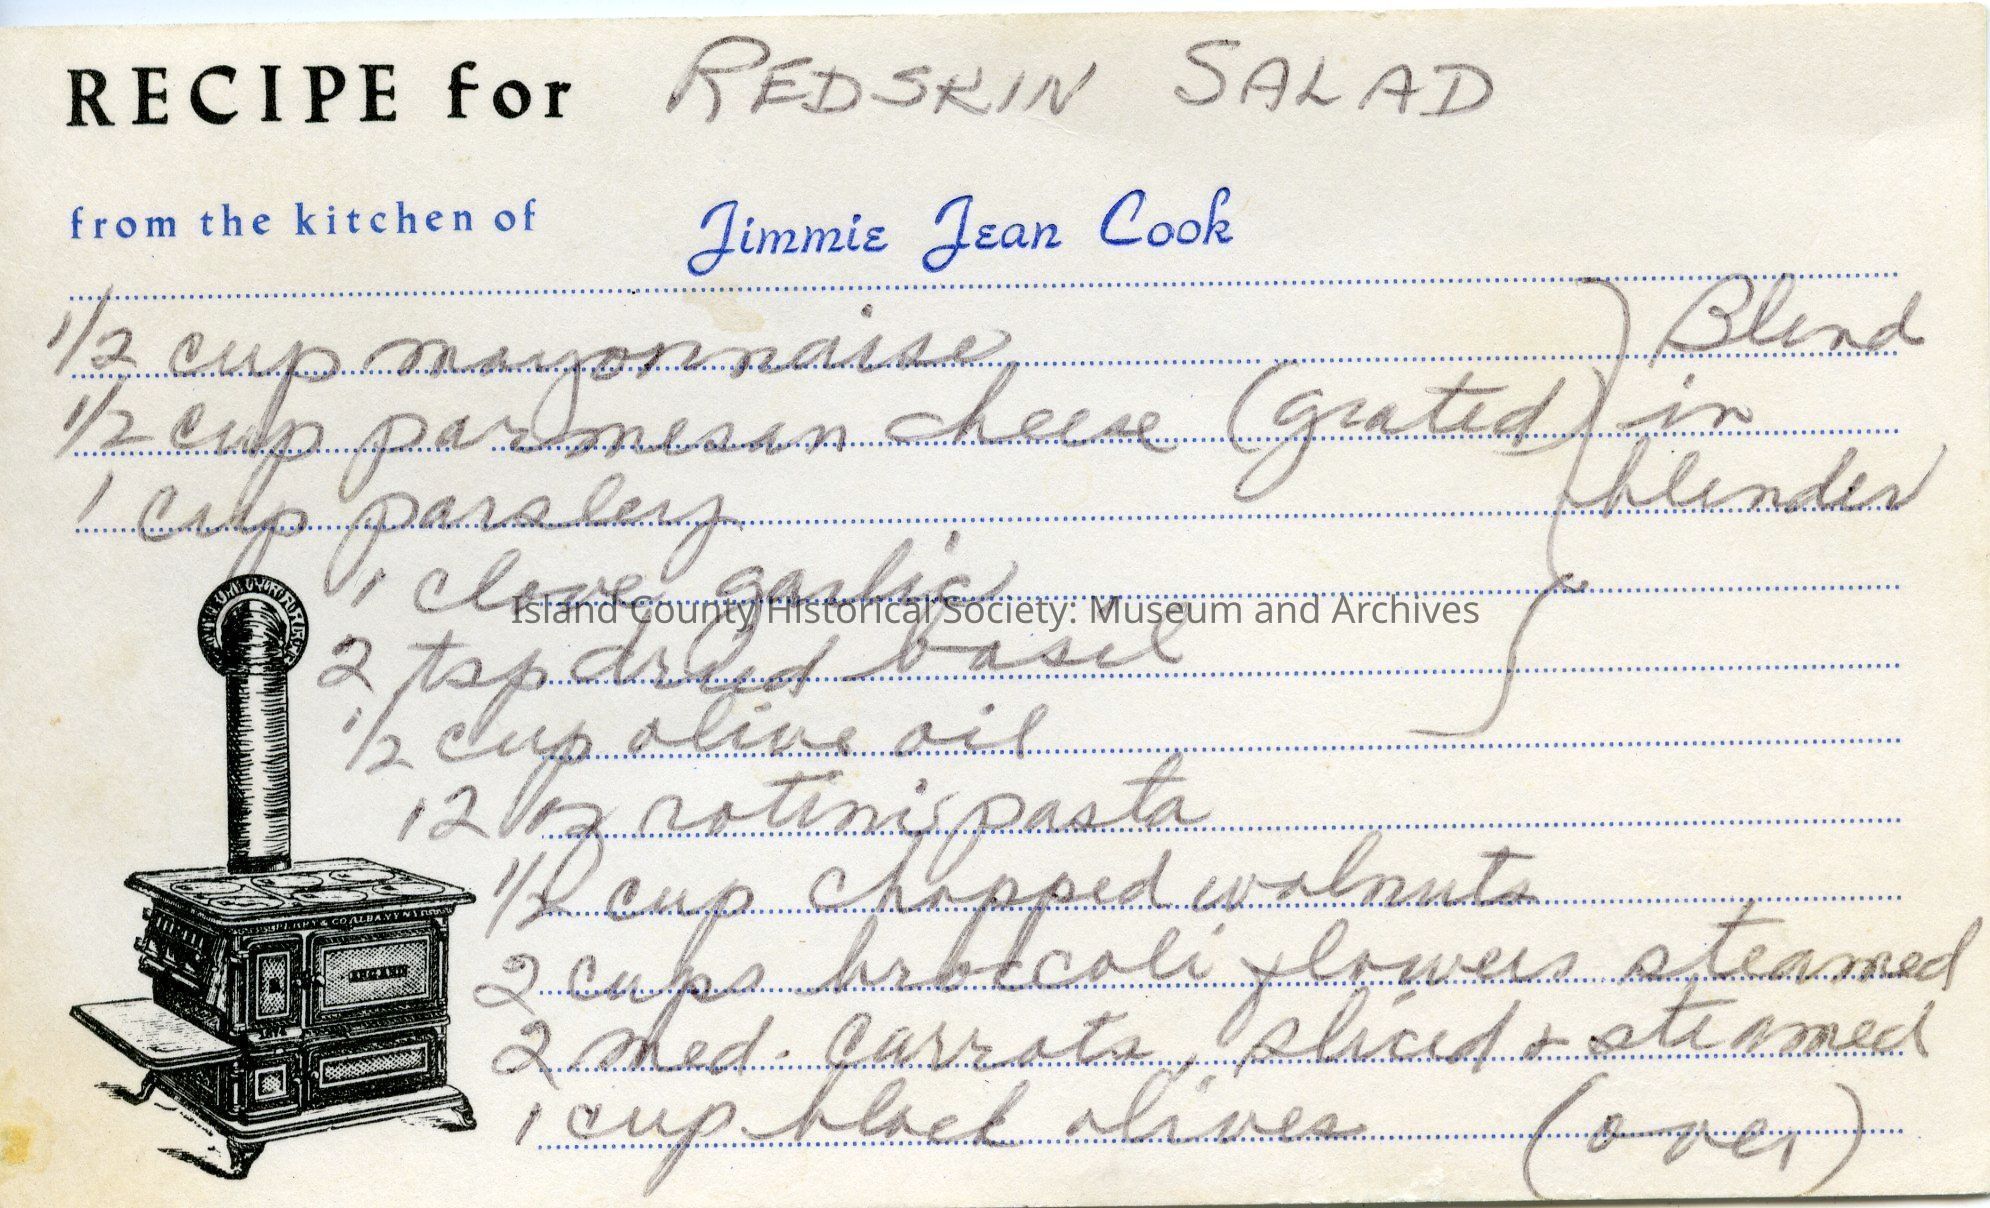 RECIPE for REDSKIN SALAD
from the kitchen of Jimmie Jean Cook
1/2 cup mayonnaise
1/2 cup parmesan cheese (grated)
1 cup parsley
1 clove garlic
2 tsp dried basil
1/2 cup olive oil
Blend
in
blender
12 oz rotini pasta
1/2 cup chopped walnuts
2 cups broccoli flowers steamed
2 med. carrots, sliced & steamed
1 cup black olives (over)
Island County Historical Society: Museum and Archives